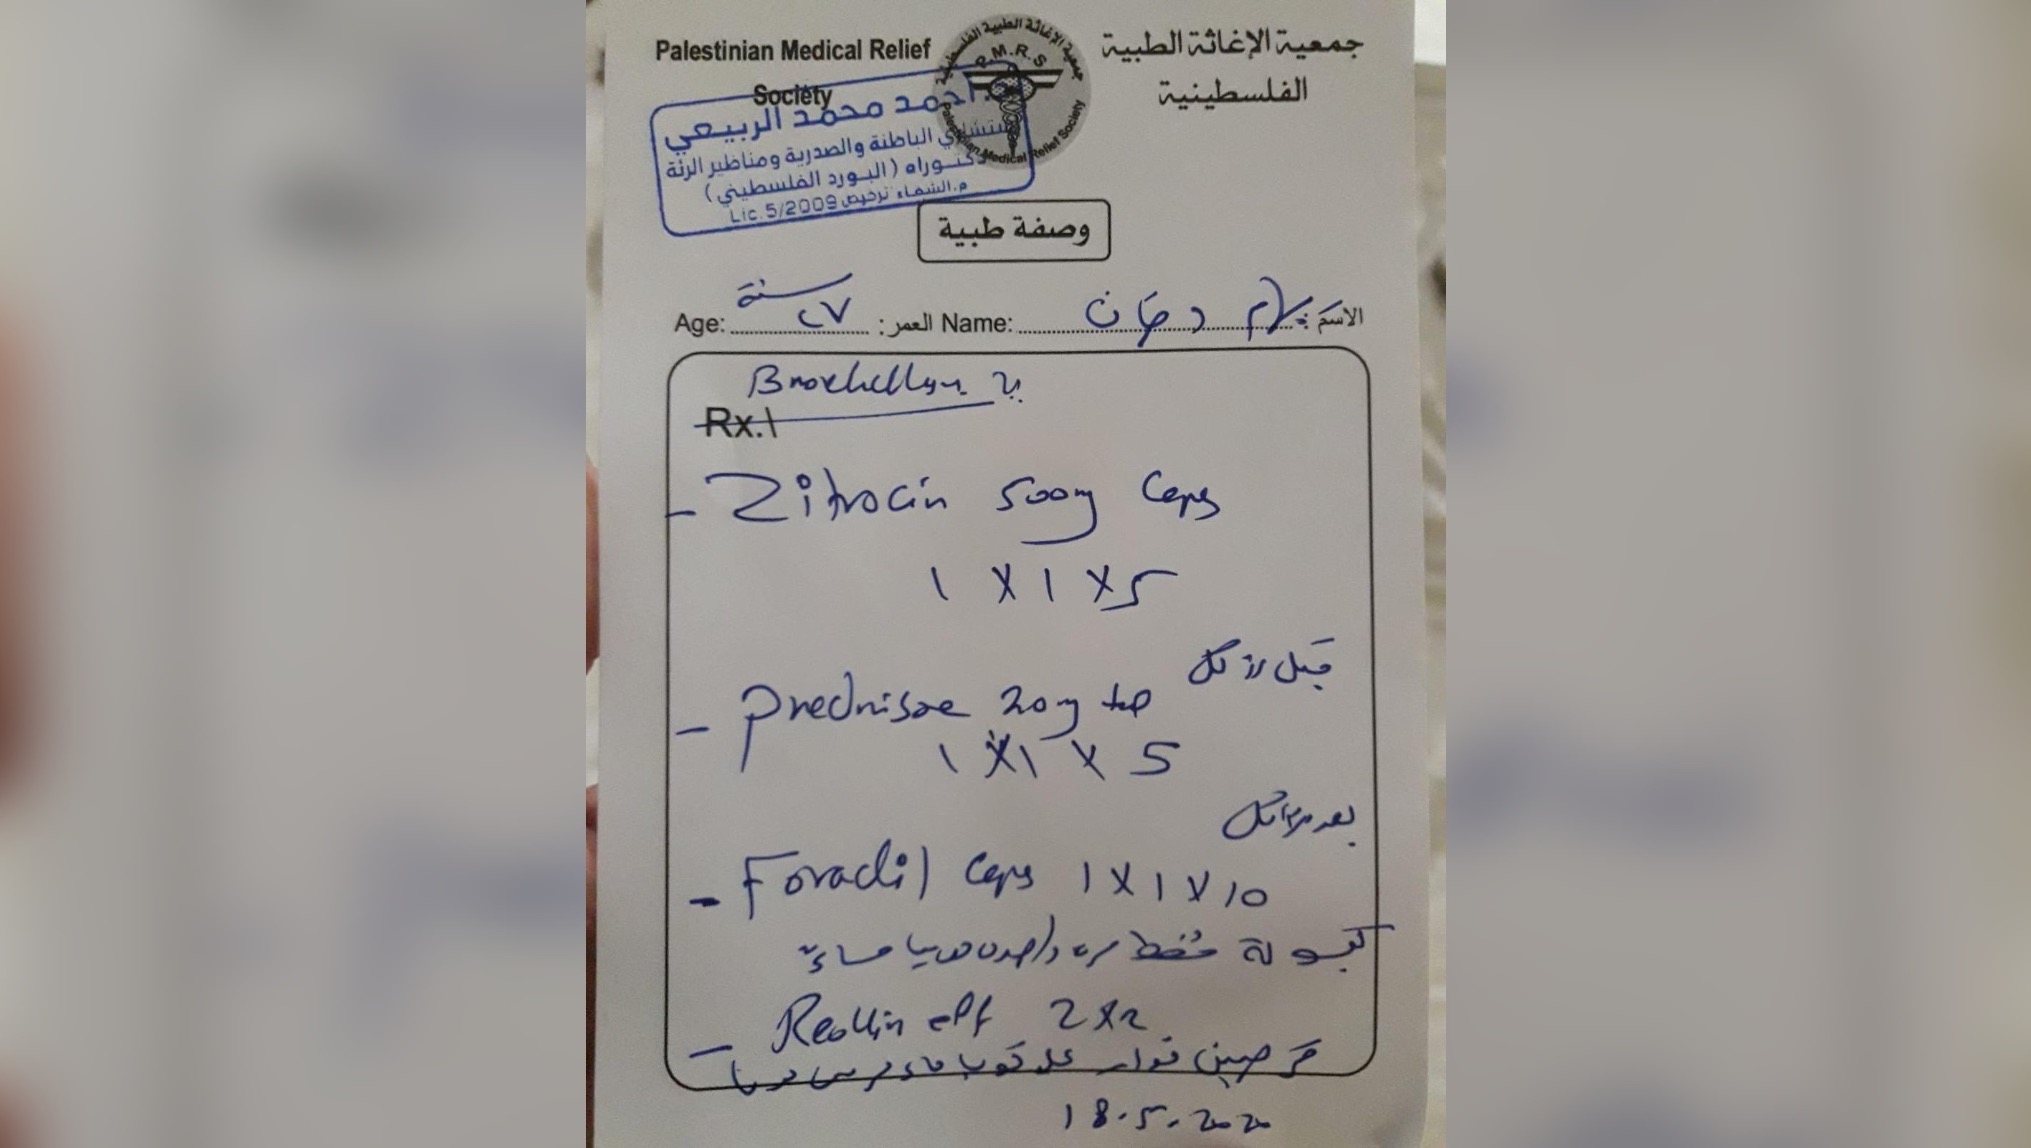 Palestinian Medical Relief Society
جمعية الإغاثة الطبية الفلسطينية
P.M.R.S
جمعية الإغاثة الطبية الفلسطينية
Palestinian Medical Relief Society
احمد محمد الربيعي
الباطنة والصدرية ومناظير الرئة
دكتوراه (البورد الفلسطيني)
م.الشفاء ترخيص Lic.5/2009
وصفة طبية
الاسم: Name: العمر: ٢٧ سنة Age:
Rx.\
- Zitrocin 500mg Caps
1 X 1 X 5
قبل الأكل
- Prednisone 20mg tab
1 X 1 X 5
بعد الأكل
- Foradil Caps 1 X 1 X 10
كبسولة مرة واحدة يوميا مساءً
- Reolin eff 2 X 2
18.5.2020